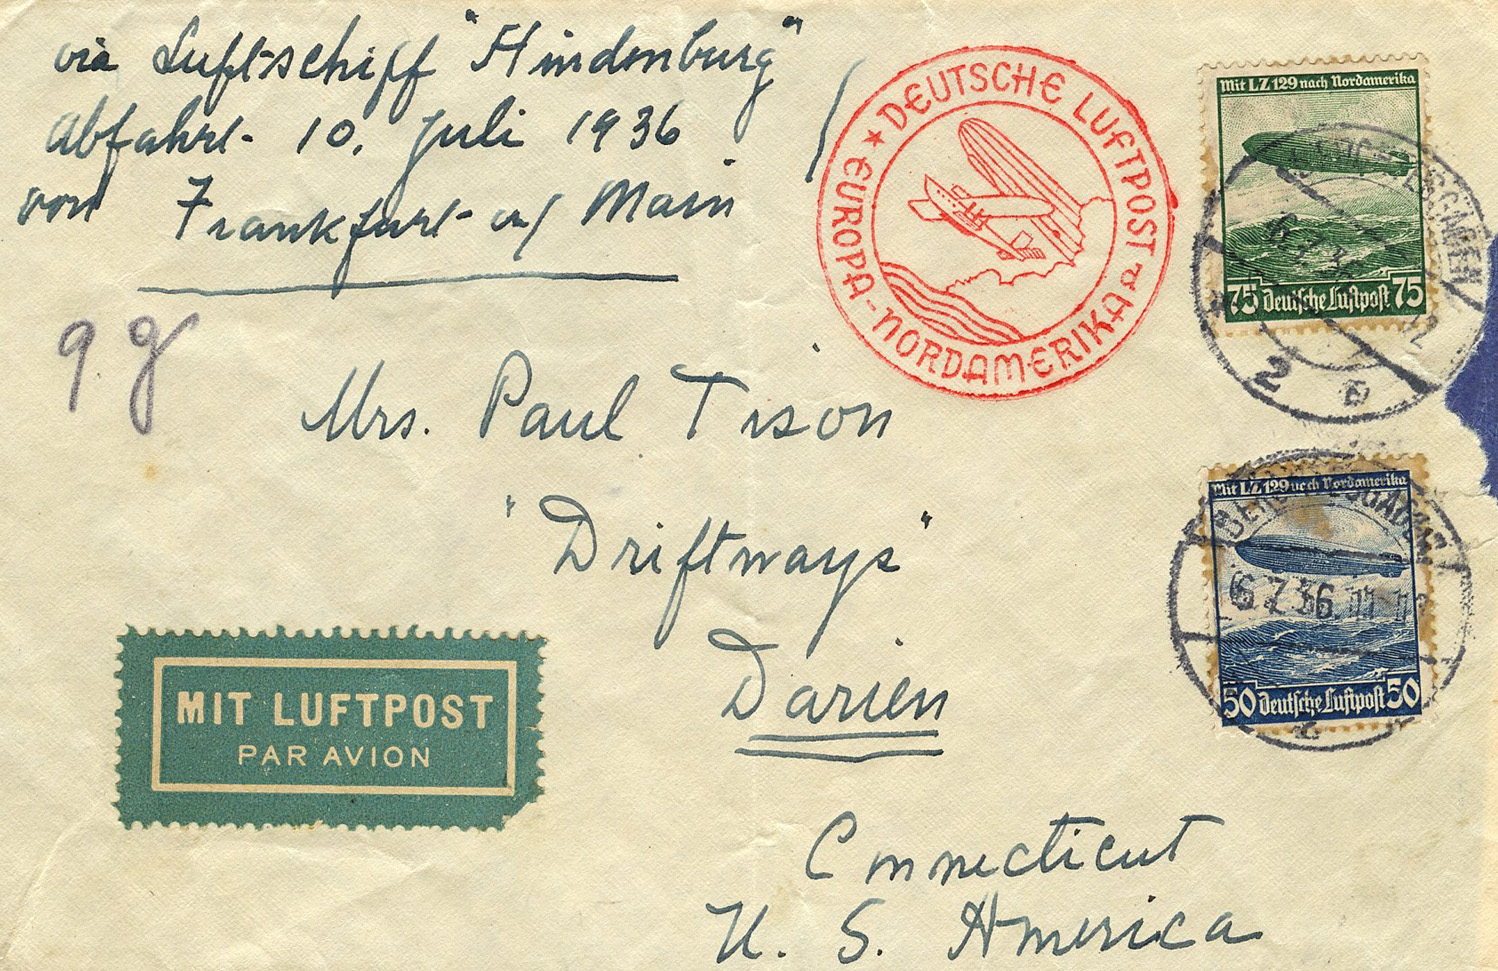 via Luftschiff "Hindenburg"
Abfahrt 10. Juli 1936
von Frankfurt a/ Main
9 g
★ DEUTSCHE LUFTPOST
EUROPA-NORDAMERIKA
Mit LZ 129 nach Nordamerika
75 Deutsche Luftpost 75
2 b
Mrs. Paul Tison
"Driftways"
Darien
Connecticut
U. S. America
Mit LZ 129 nach Nordamerika
BERCHTESGADEN
6.7.36
50 Deutsche Luftpost 50
MIT LUFTPOST
PAR AVION